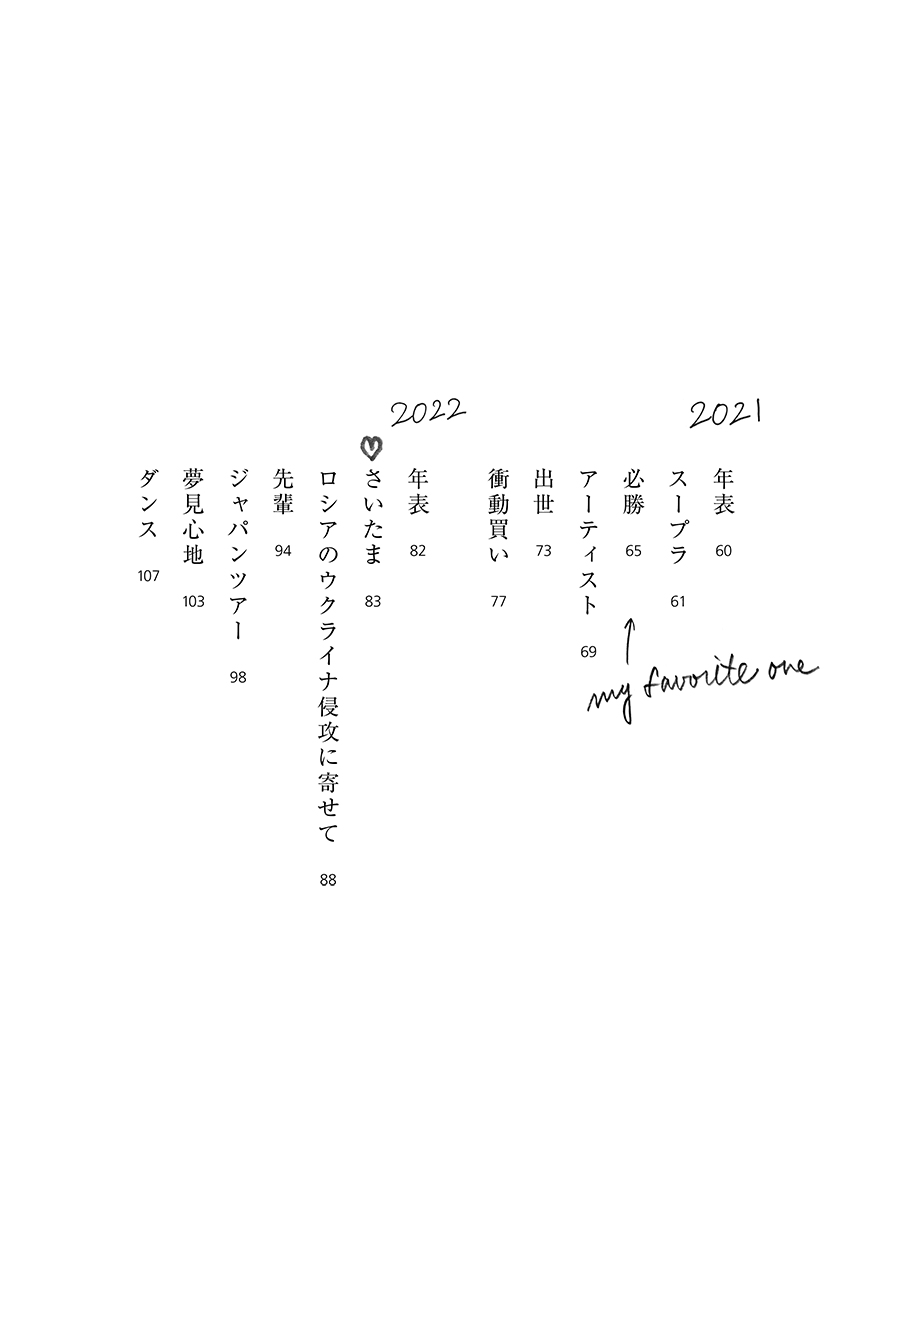 2021
年表 60
スープラ 61
必勝 65
my favorite one
アーティスト 69
出世 73
衝動買い 77
2022
年表 82
さいたま 83
ロシアのウクライナ侵攻に寄せて 88
先輩 94
ジャパンツアー 98
夢見心地 103
ダンス 107